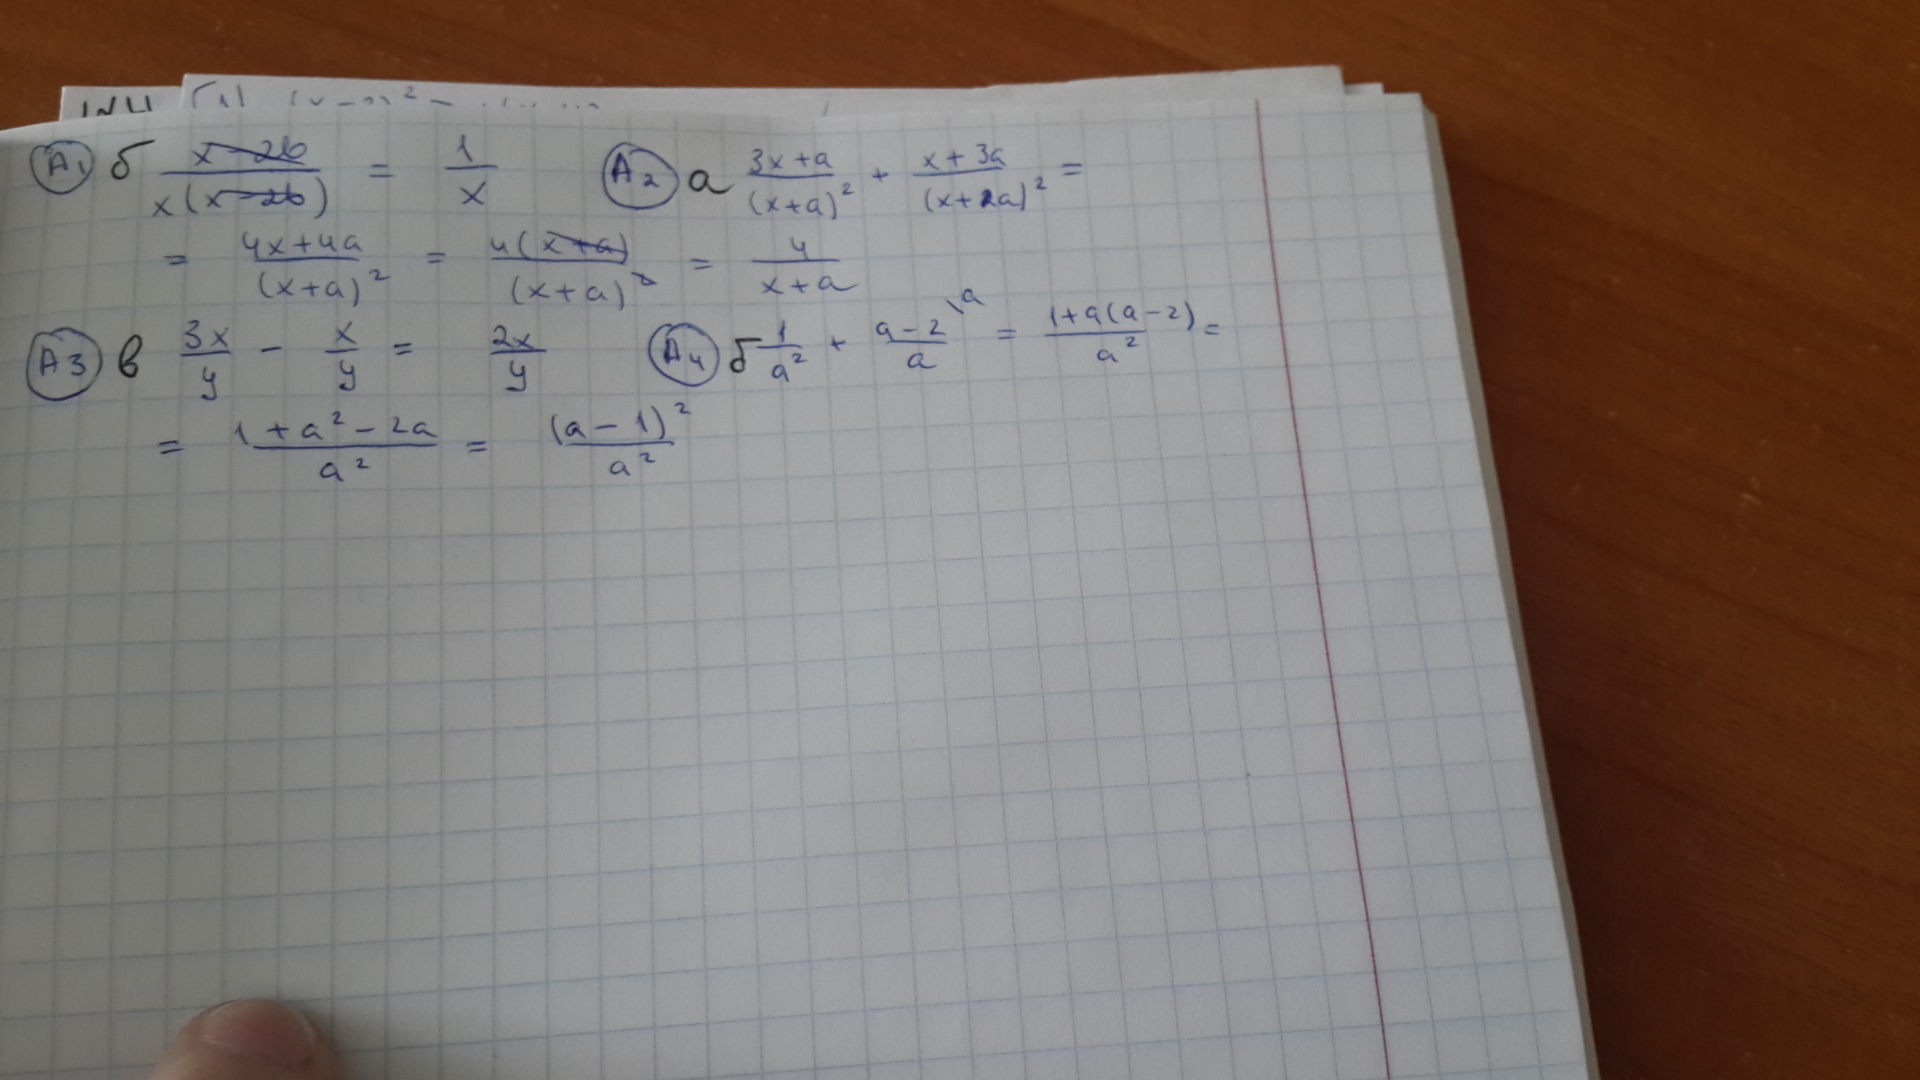 А1 б (x-2b)/(x(x-2b)) = 1/x А2 а (3x+a)/(x+a)² + (x+3a)/(x+a)² =
= (4x+4a)/(x+a)² = 4(x+a)/(x+a)² = 4/(x+a)
А3 в 3x/y - x/y = 2x/y А4 б 1/a² + (a-2)/a \a = (1+a(a-2))/a² =
= (1+a²-2a)/a² = (a-1)²/a²